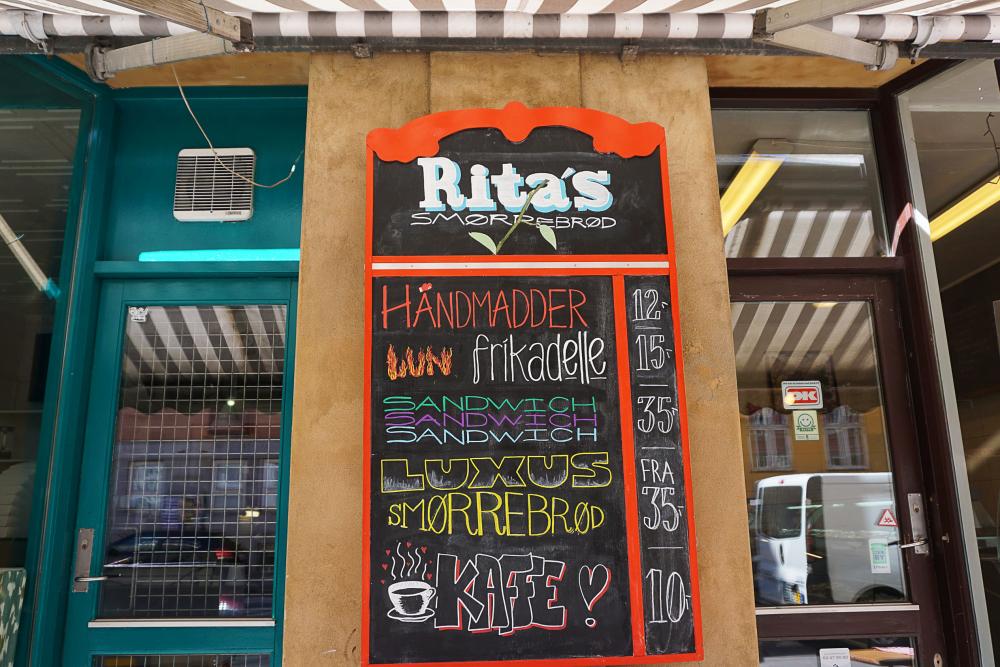 Rita's
SMØRREBRØD
HÅNDMADDER 12,-
LUN frikadelle 15,-
SANDWICH
SANDWICH 35,-
SANDWICH
LUXUS FRA
SMØRREBRØD 35,-
KAFFE! 10,-
DK